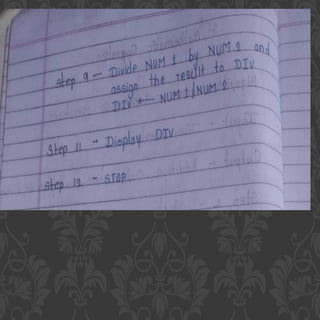 Step 9 - Divide NUM 1 by NUM 2 and
assign the result to DIV
DIV ← NUM 1/NUM 2
Step 11 - Display DIV
Step 12 - STOP.